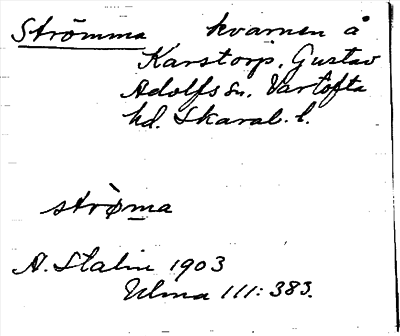 Strömma kvarnen å
Karstorp. Gustav
Adolfs sn. Vartofta
hd. Skarab. l.
strø̀ma
A. Stalin 1903
Ulma 111: 383.